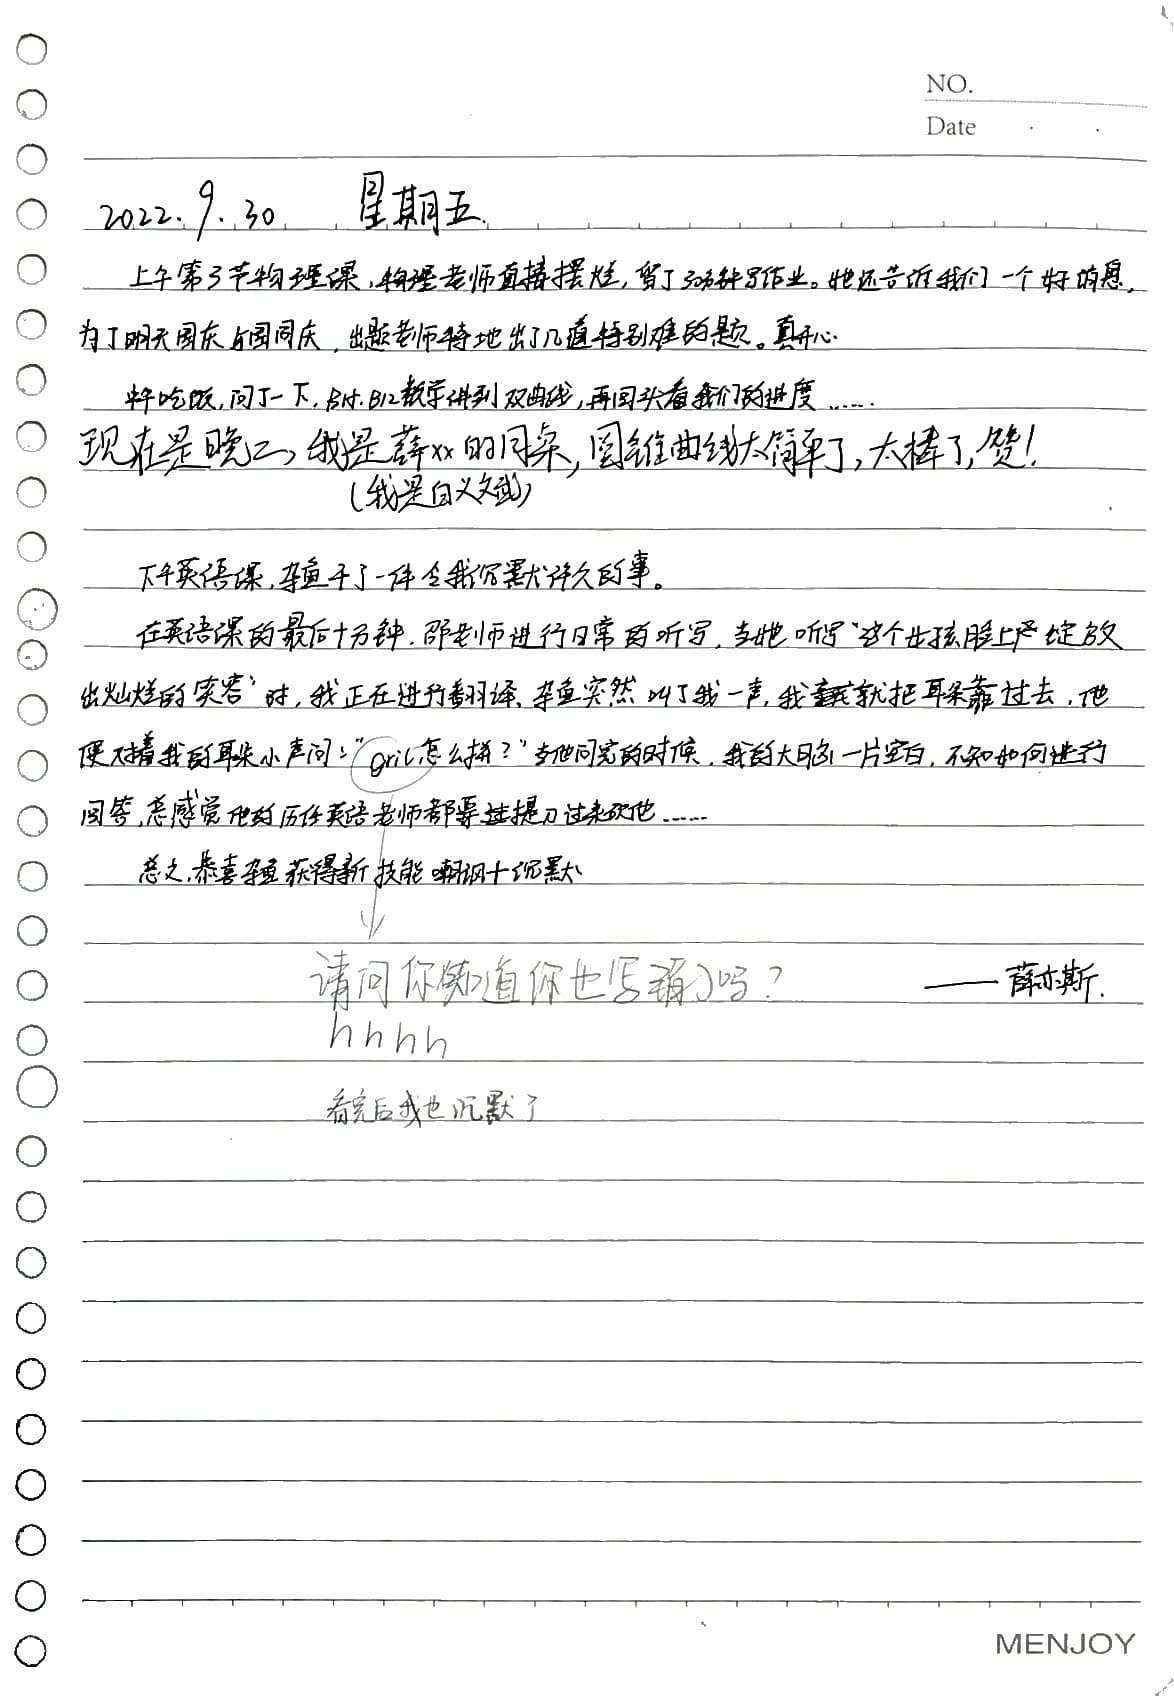 NO.
Date
2022.9.30 星期五.
上午第3节物理课,物理老师直接摆烂,留了30分钟写作业。她还告诉我们一个好消息,
为了明天国庆与国同庆,出题老师特地出了几道特别难的题。真开心.
中午吃饭,问了一下,B14.B12数学讲到双曲线,再回头看我们的进度……
现在是晚二,我是薛xx的同桌,圆锥曲线太简单了,太棒了,赞!
(我是白义文武)
下午英语课,杂鱼干了一件令我沉默许久的事。
在英语课的最后十分钟.邵老师进行日常的听写,当她听写“这个女孩脸上 绽放
出灿烂的笑容”时,我正在进行翻译、杂鱼突然叫了我一声,我 就把耳朵靠过去,他
便对着我的耳朵小声问:“gril怎么拼?”当他问完的时候,我的大脑一片空白,不知如何进行
回答,总感觉他的历任英语老师都要 提刀过来砍他……
总之,恭喜杂鱼获得新技能 嘲讽+沉默
请问你知道你也写错了吗?
——薛亦斯.
hhhh
看完后我也沉默了
MENJOY